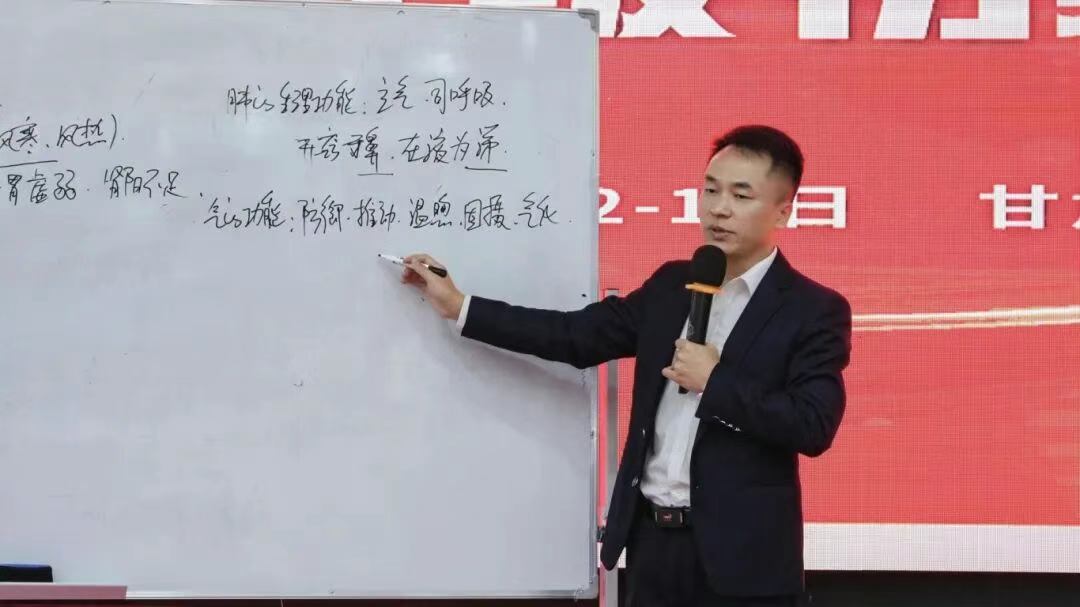 肺的生理功能：主气 司呼吸.
风寒、风热).
开窍于鼻，在液为涕.
胃虚弱、肾阳不足、
气的功能：防御·推动·温煦·固摄·气化
2-1
日
甘